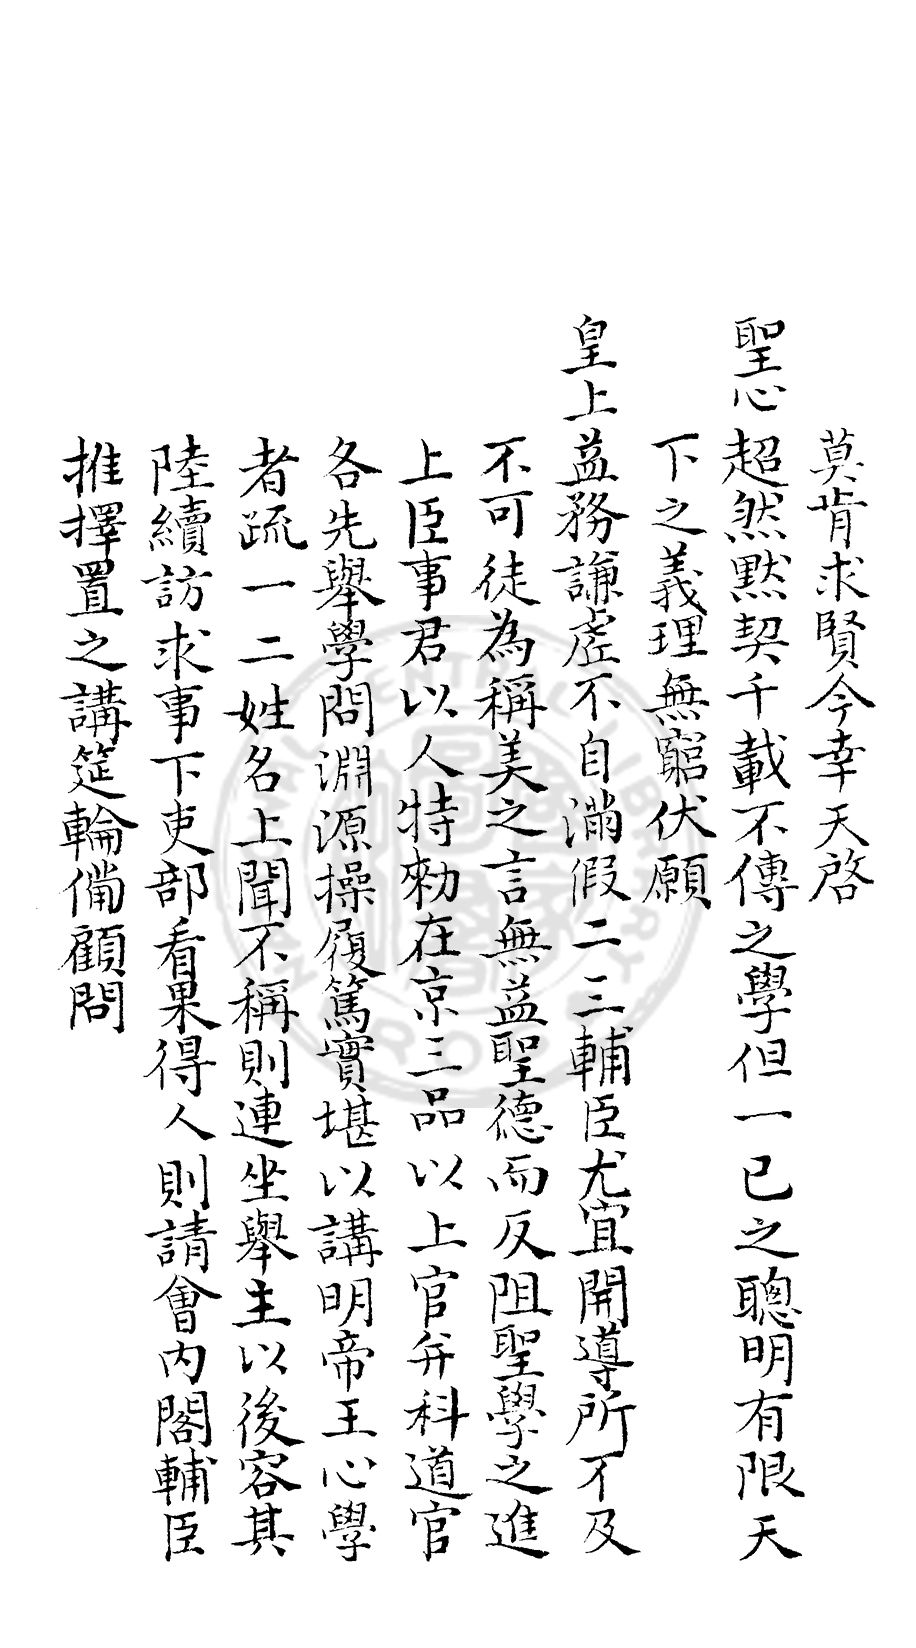 莫肯求賢今幸天啓
聖心超然默契千載不傳之學但一已之聰明有限天
下之義理無窮伏願
皇上益務謙虛不自滿假二三輔臣尤宜開導所不及
不可徒為稱美之言無益聖德而反阻聖學之進
上臣事君以人特勑在京三品以上官并科道官
各先舉學問淵源操履篤實堪以講明帝王心學
者疏一二姓名上聞不稱則連坐舉主以後容其
陸續訪求事下吏部看果得人則請會內閣輔臣
推擇置之講筵輪備顧問
NATIONAL CENTRAL LIBRARY